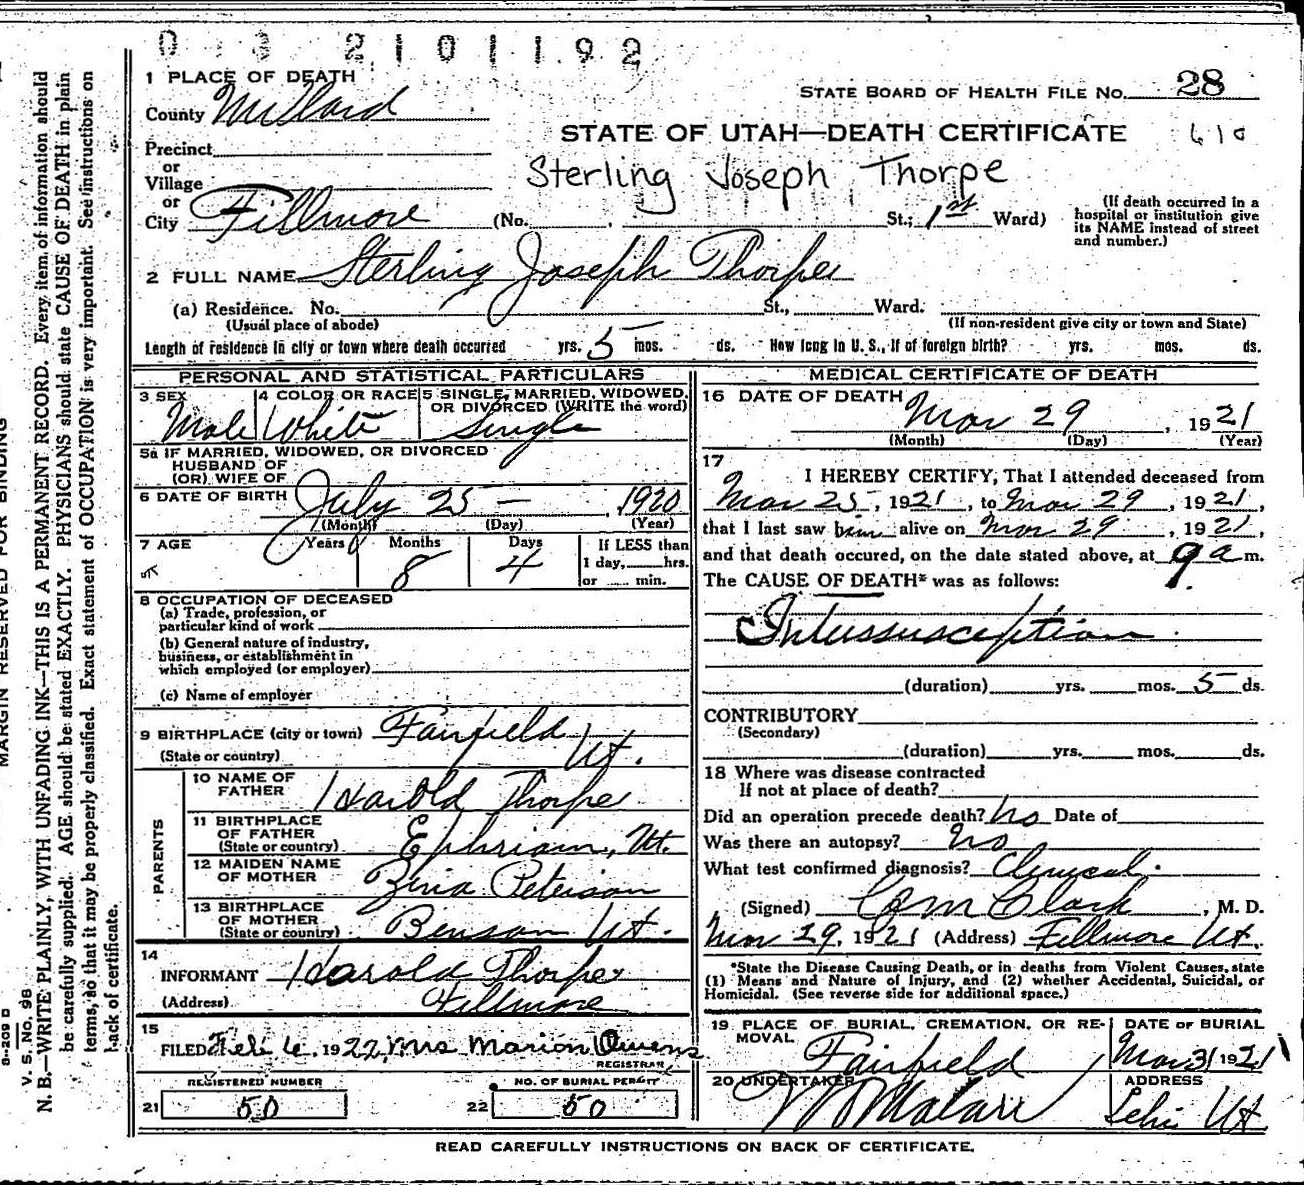 0 0 2 1 0 1 1 9 2
MARGIN RESERVED FOR BINDING
V. S. No. 98
N. B.—WRITE PLAINLY, WITH UNFADING INK—THIS IS A PERMANENT RECORD. Every item of information should
be carefully supplied. AGE should be stated EXACTLY. PHYSICIANS should state CAUSE OF DEATH in plain
terms, so that it may be properly classified. Exact statement of OCCUPATION is very important. See instructions on
back of certificate.
1 PLACE OF DEATH
County Millard
STATE BOARD OF HEALTH FILE NO. 28
STATE OF UTAH—DEATH CERTIFICATE
Precinct
or
Village
Sterling Joseph Thorpe
or
City Fillmore (No. St.; 1st Ward)
(If death occurred in a
hospital or institution give
its NAME instead of street
and number.)
2 FULL NAME Sterling Joseph Thorpe
(a) Residence. No. St., Ward.
(Usual place of abode) (If non-resident give city or town and State)
Length of residence in city or town where death occurred yrs. 5 mos. ds. How long in U. S., if of foreign birth? yrs. mos. ds.
PERSONAL AND STATISTICAL PARTICULARS
3 SEX
Male
4 COLOR OR RACE
White
5 SINGLE, MARRIED, WIDOWED,
OR DIVORCED (WRITE the word)
Single
5a IF MARRIED, WIDOWED, OR DIVORCED
HUSBAND OF
(OR) WIFE OF
6 DATE OF BIRTH July 25 — , 1920
(Month) (Day) (Year)
7 AGE Years Months Days If LESS than
1 day, hrs.
or min.
8 4
8 OCCUPATION OF DECEASED
(a) Trade, profession, or
particular kind of work
(b) General nature of industry,
business, or establishment in
which employed (or employer)
(c) Name of employer
9 BIRTHPLACE (city or town) Fairfield
(State or country) Ut.
PARENTS
10 NAME OF
FATHER Harold Thorpe
11 BIRTHPLACE
OF FATHER
(State or country) Ephriam, Ut.
12 MAIDEN NAME
OF MOTHER Zina Peterson
13 BIRTHPLACE
OF MOTHER
(State or country) Benson Ut.
14
INFORMANT Harold Thorpe
(Address) Fillmore
15
FILED Feb 6, 1922, Mrs Marion Owens
REGISTRAR
REGISTERED NUMBER
21 50
NO. OF BURIAL PERMIT
22 50
MEDICAL CERTIFICATE OF DEATH
16 DATE OF DEATH Mar 29, 1921
(Month) (Day) (Year)
17
I HEREBY CERTIFY, That I attended deceased from
Mar 25, 1921, to Mar 29, 1921,
that I last saw him alive on Mar 29, 1921,
and that death occured, on the date stated above, at 9 a m.
The CAUSE OF DEATH* was as follows:
Intussusception
(duration) yrs. mos. 5 ds.
CONTRIBUTORY
(Secondary)
(duration) yrs. mos. ds.
18 Where was disease contracted
If not at place of death?
Did an operation precede death? No Date of
Was there an autopsy? No
What test confirmed diagnosis? Clinical.
(Signed) Clark, M. D.
Mar 29, 1921 (Address) Fillmore Ut.
*State the Disease Causing Death, or in deaths from Violent Causes, state
(1) Means and Nature of Injury, and (2) whether Accidental, Suicidal, or
Homicidal. (See reverse side for additional space.)
19 PLACE OF BURIAL, CREMATION, OR RE-
MOVAL
Fairfield
DATE OF BURIAL
Mar 31 1921
20 UNDERTAKER
ADDRESS
Lehi Ut
READ CAREFULLY INSTRUCTIONS ON BACK OF CERTIFICATE.